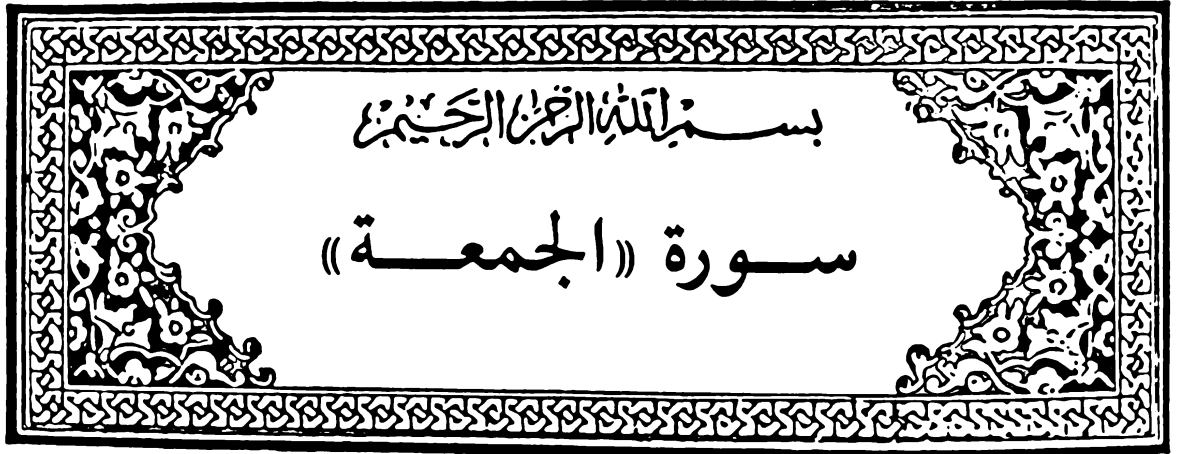 بسم الله الرحمن الرحيم
سورة «الجمعة»